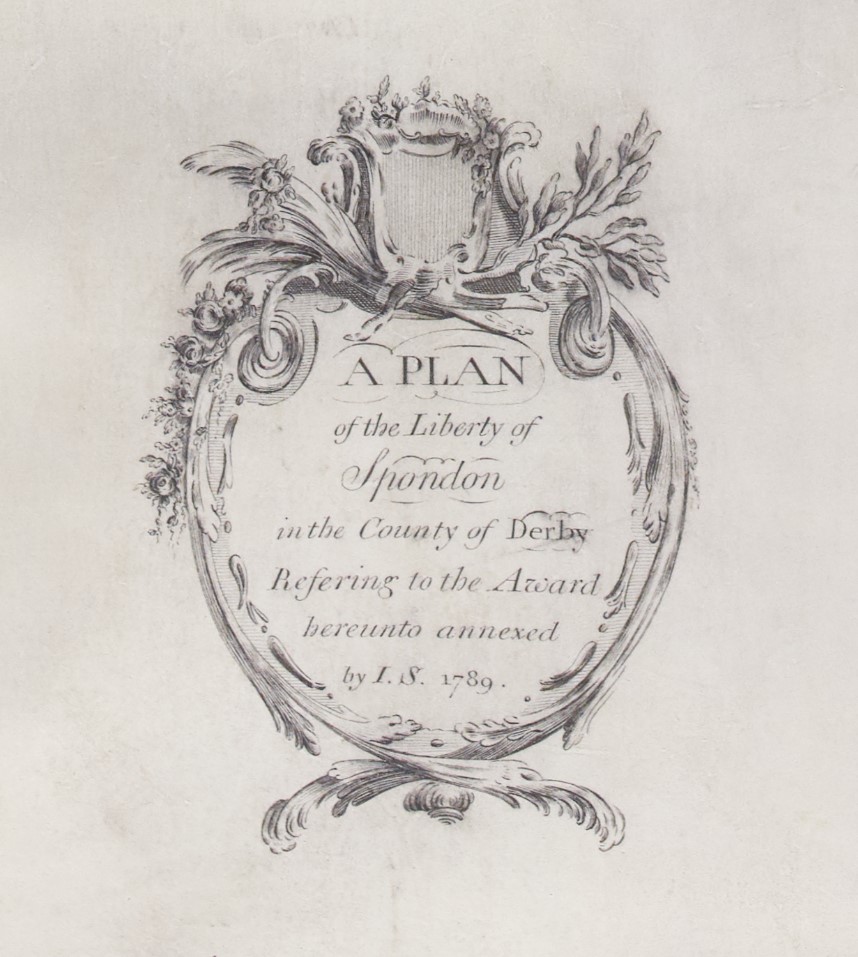 A PLAN
of the Liberty of
Spondon
in the County of Derby
Refering to the Award
hereunto annexed
by I. S. 1789.